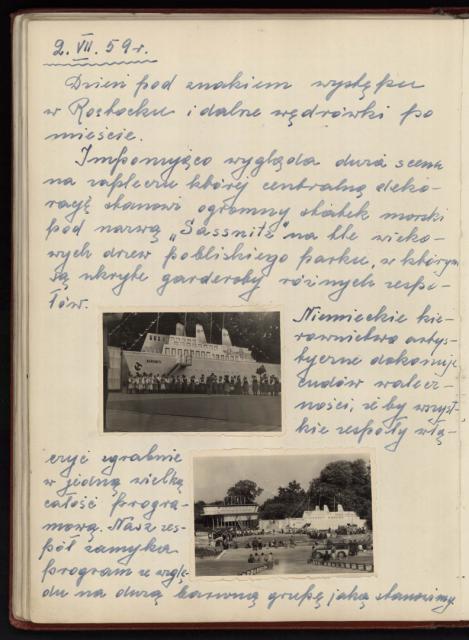 2. VII. 59 r.
Dzień pod znakiem występu
w Rostocku i dalne wędrówki po
mieście.
Imponująco wygląda duża scena
na zapleczu której centralną deko-
rację stanowi ogromny statek morski
pod nazwą „Sassnitz" na tle wieko-
wych drzew pobliskiego parku, w którym
są ukryte garderoby różnych zespo-
łów.
Niemieckie kie-
rownictwo artys-
tyczne dokonuje
cudów walecz-
ności, żeby wszyst-
kie zespoły włą-
czyć zgrabnie
w jedną wielką
całość progra-
mową. Nasz zes-
pół zamyka
program ze wzglę-
du na dużą barwną grupę jaką stanowimy.